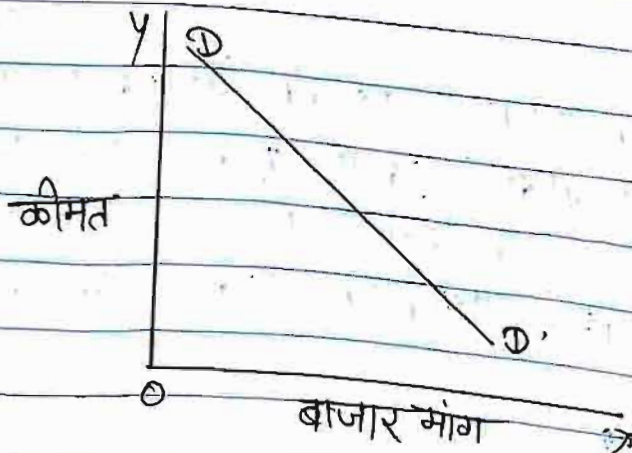 y
D
कीमत
D'
O
बाजार मांग
x